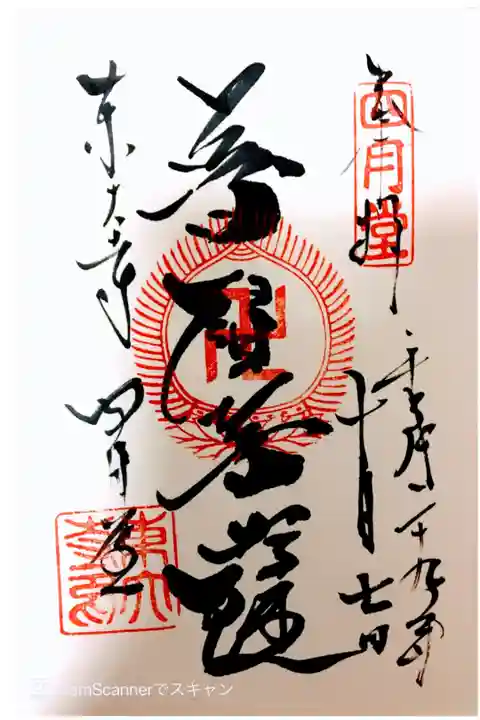 四月堂
奉拝
平成二十九年
十月七日
普賢菩薩
卍
東大寺 四月堂
CamScannerでスキャン